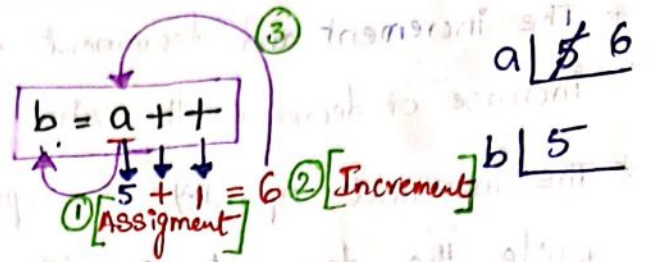 ③
a 5 6
b = a + +
5 + 1 = 6 ② [Increment]
b 5
① [Assigment]